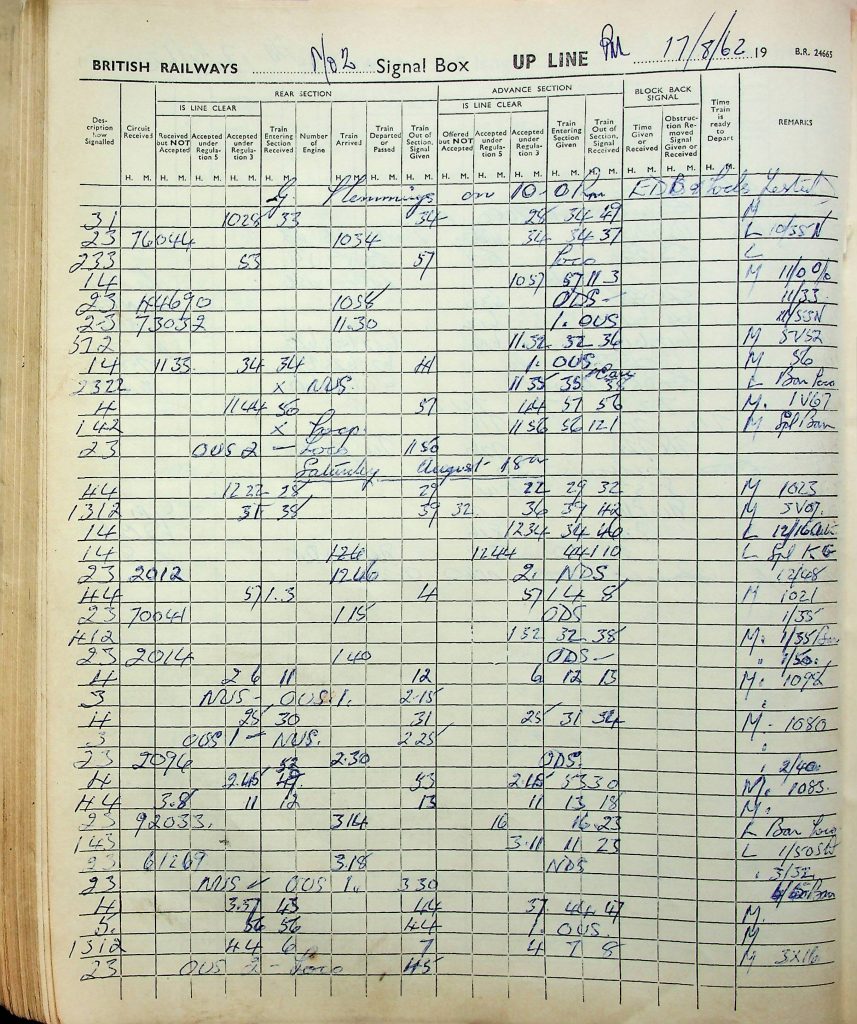 BRITISH RAILWAYS No 2 Signal Box UP LINE PM 17/8/62 19 B.R. 24665
REAR SECTION ADVANCE SECTION BLOCK BACK SIGNAL
IS LINE CLEAR IS LINE CLEAR
Description how Signalled Circuit Received Received but NOT Accepted Accepted under Regulation 5 Accepted under Regulation 3 Train Entering Section Received Number of Engine Train Arrived Train Departed or Passed Train Out of Section, Signal Given Offered but NOT Accepted Accepted under Regulation 5 Accepted under Regulation 3 Train Entering Section Given Train Out of Section, Signal Received Time Given or Received Obstruction Removed Signal Given or Received Time Train is ready to Depart REMARKS
H. M. H. M. H. M. H. M. H. M. H. M. H. M. H. M. H. M. H. M. H. M. H. M. H. M. H. M. H. M. H. M.
G. Flemmings on 10-0 Pm Tested
31 1028 33 34 28 34 49 M
23 76044 1034 34 34 37 L 10/35N
233 53 57 Loco L
14 1057 57 11 3 M
23 44690 1058 ODS - 11/33
23 73032 11.30 1. OUS
512 11.32 32 36 M 5V52
14 11 33 34 34 1. OUS M 56
2322 x NUS. 11 35 35 L Ban Loco
4 1144 56 57 57 56 M. 1V67
142 x Loop 1156 56 121 M Spl Ban
23 OUS 2 - Loco 1150
Saturday August 18th
44 1222 28 29 22 29 32 M 1023
1312 31 38 39 32 36 39 42 M 3V07.
14 1234 34 40 L
14 1244 44 1 10 L Spl KG
23 2012 1246 2. NDS. 12/48
44 57 1.3 4 57 1 4 8 M 1021
23 70041 115 ODS 1/35
412 132 32 38 M. 1/35 Ban
23 2014 140 ODS - 1/50.
4 2 6 11 12 6 12 13 M. 1098
3 NUS - OUS. 1. 2-15
4 25 30 31 25 31 34 M. 1080
3 OUS 1 - NUS. 2 25
23 2096 2.30 ODS. 2/40
4 2.45 53 2.45 53 3 0 M. 1083.
44 3.8 11 12 13 11 13 18 M.
23 92033. 314 16 16 23 L Ban Loco
143 3.11 11 23 L
23 61269 3.18 NDS 3/32
23 NUS - OUS 1. 3 30
4 3.37 43 44 37 44 47 M.
5. 56 56 44 1. OUS. M
1312 44 6 7 4 7 8 M
23 OUS 2 - Loco 45